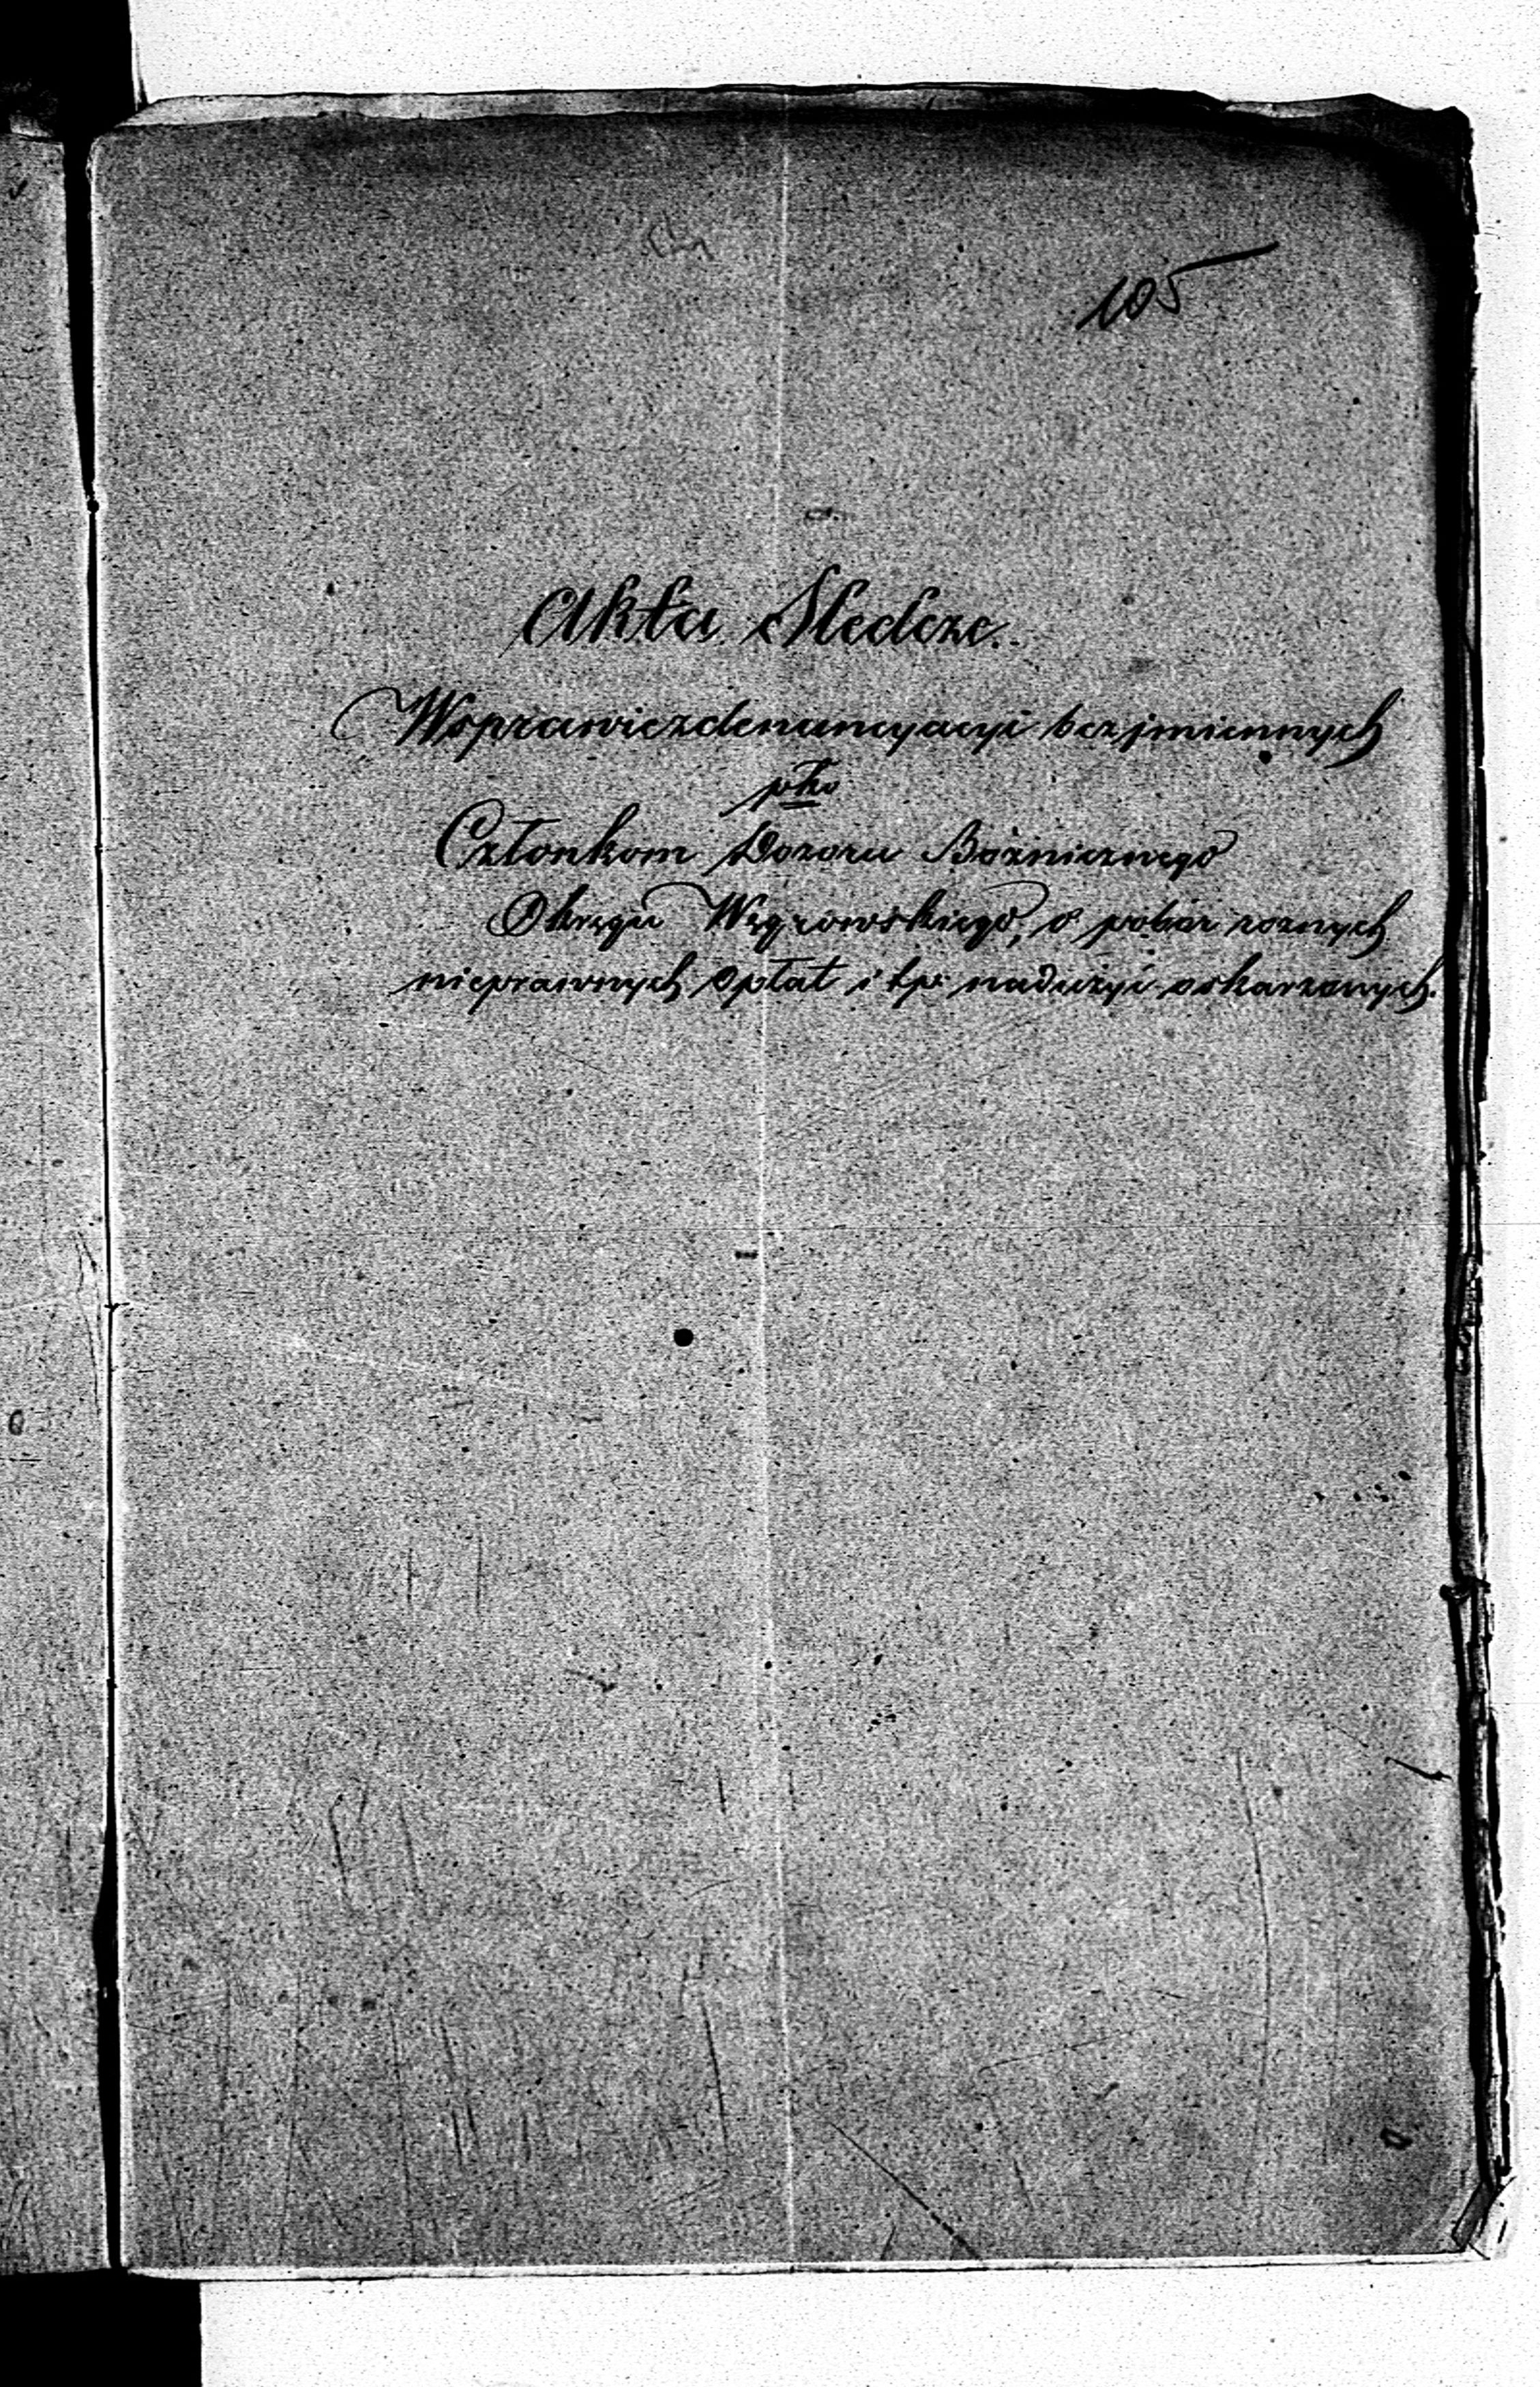 105
Akta Śledcze.
W sprawie z denuncyacyi bezjmiennych
pko
Członkom Dozoru Bóżnicznego
Okręgu Węgrowskiego, o pobór roznych
nieprawnych opłat i tp. nadużyć oskarzonych.